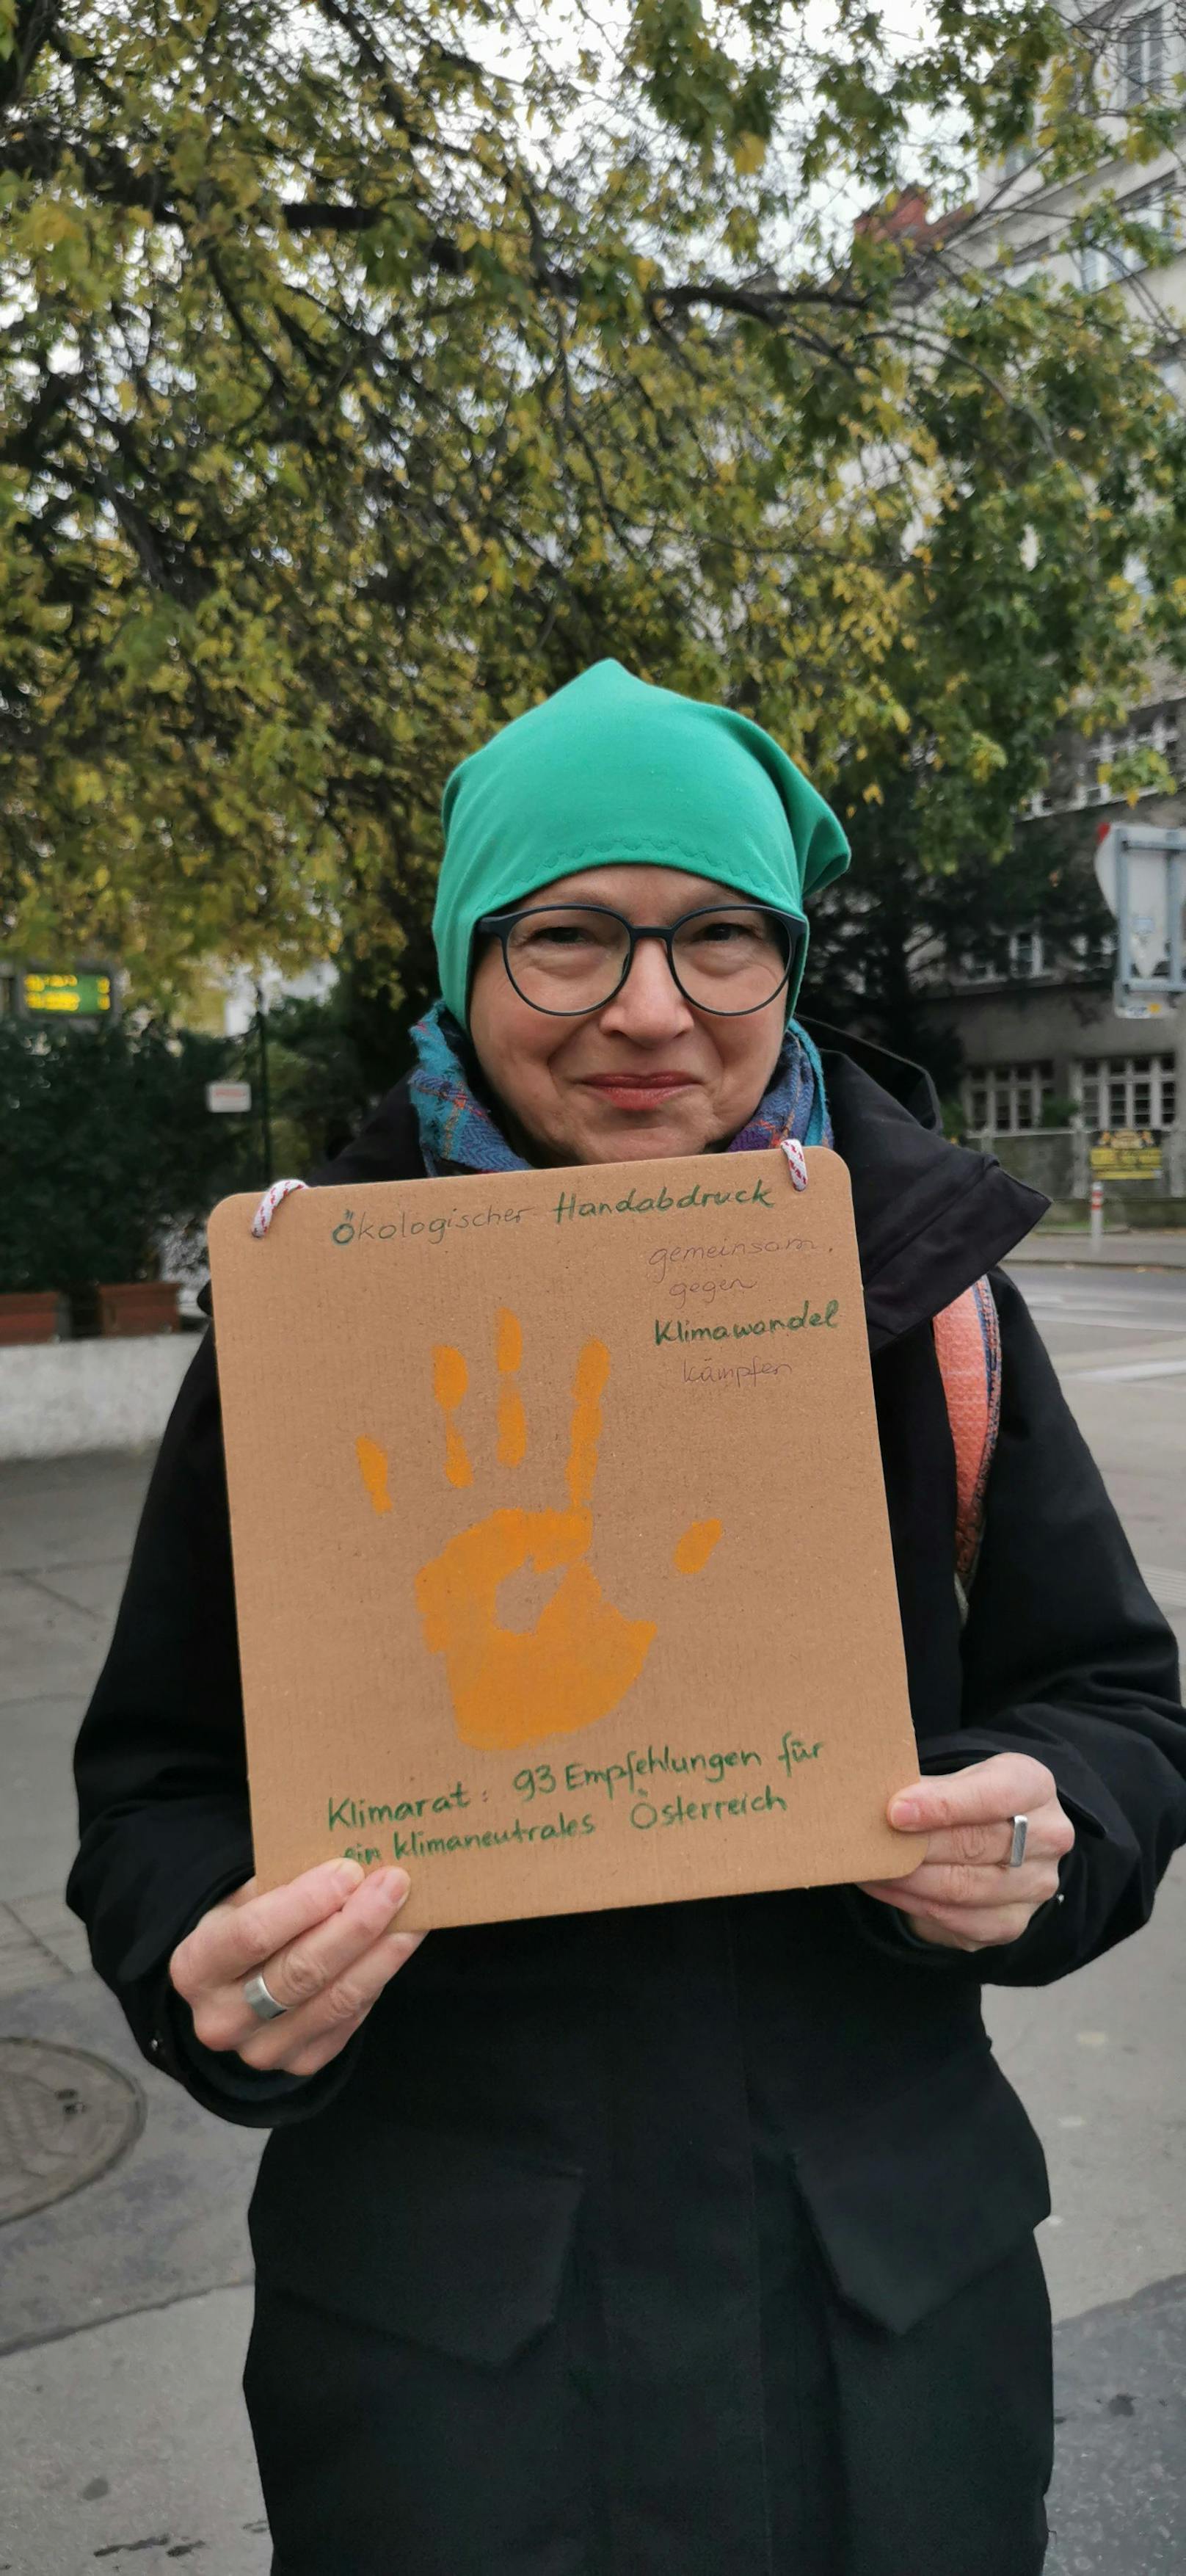 Ökologischer Handabdruck
gemeinsam
gegen
Klimawandel
kämpfen
Klimarat: 93 Empfehlungen für
ein klimaneutrales Österreich